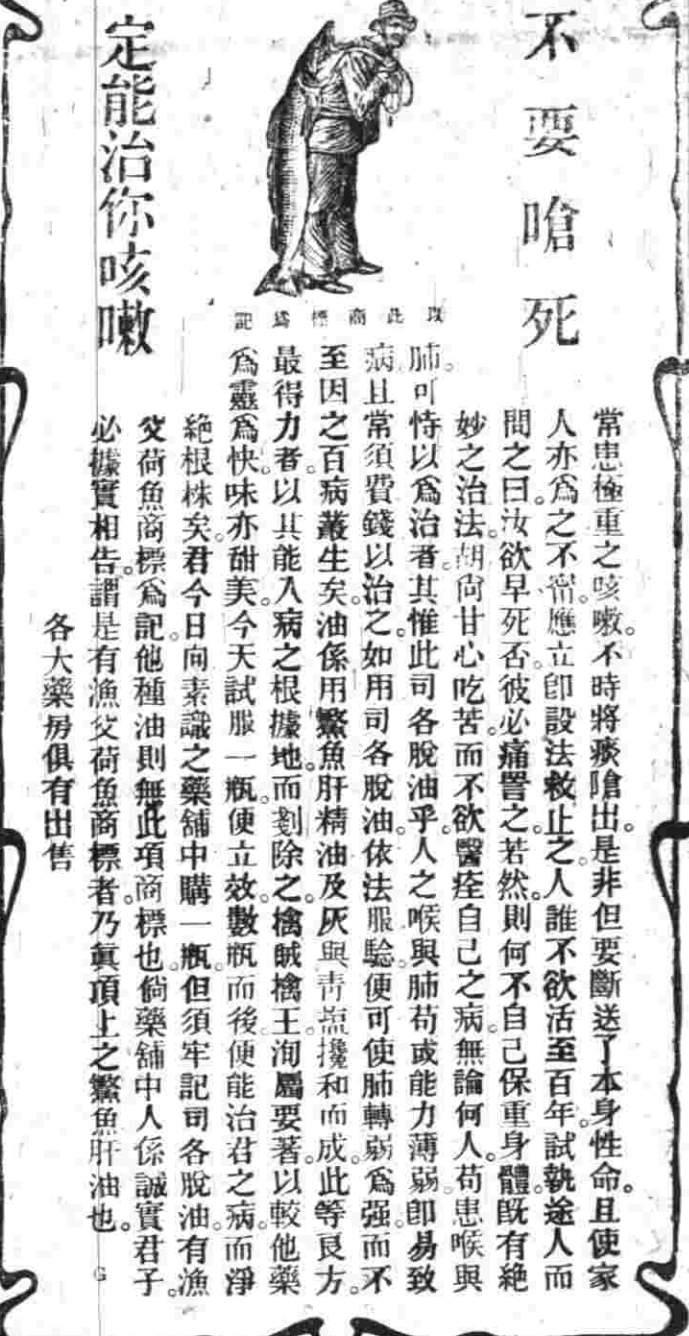 不要嗆死
以此商標爲記
定能治你咳嗽
常患極重之咳嗽。不時將痰嗆出。是非但要斷送了本身性命。且使家
人亦爲之不甯。應立卽設法救止之。人誰不欲活至百年。試執途人而
問之曰。汝欲早死否。彼必痛詈之。若然。則何不自己保重身體。旣有絕
妙之治法。胡尙甘心吃苦。而不欲醫痊自己之病。無論何人。苟患喉與
肺。可恃以爲治者。其惟此司各脫油乎。人之喉與肺苟或能力薄弱。卽易致
病。且常須費錢以治之。如用司各脫油。依法服驗。便可使肺轉弱爲强。而不
至因之百病叢生矣。油係用鱉魚肝精油及灰與靑鹽攙和而成。此等良方。
最得力者。以其能入病之根據地。而剗除之。擒賊擒王。洵屬要著。以較他藥
爲靈爲快。味亦甜美。今天試服一瓶。便立效。數瓶而後。便能治君之病。而淨
絕根株矣。君今日向素識之藥舖中購一瓶。但須牢記司各脫油。有漁
父荷魚商標爲記。他種油則無此項商標也。倘藥舖中人係誠實君子。
必據實相告。謂是有漁父荷魚商標者。乃眞頂上之鱉魚肝油也。 G
各大藥房俱有出售